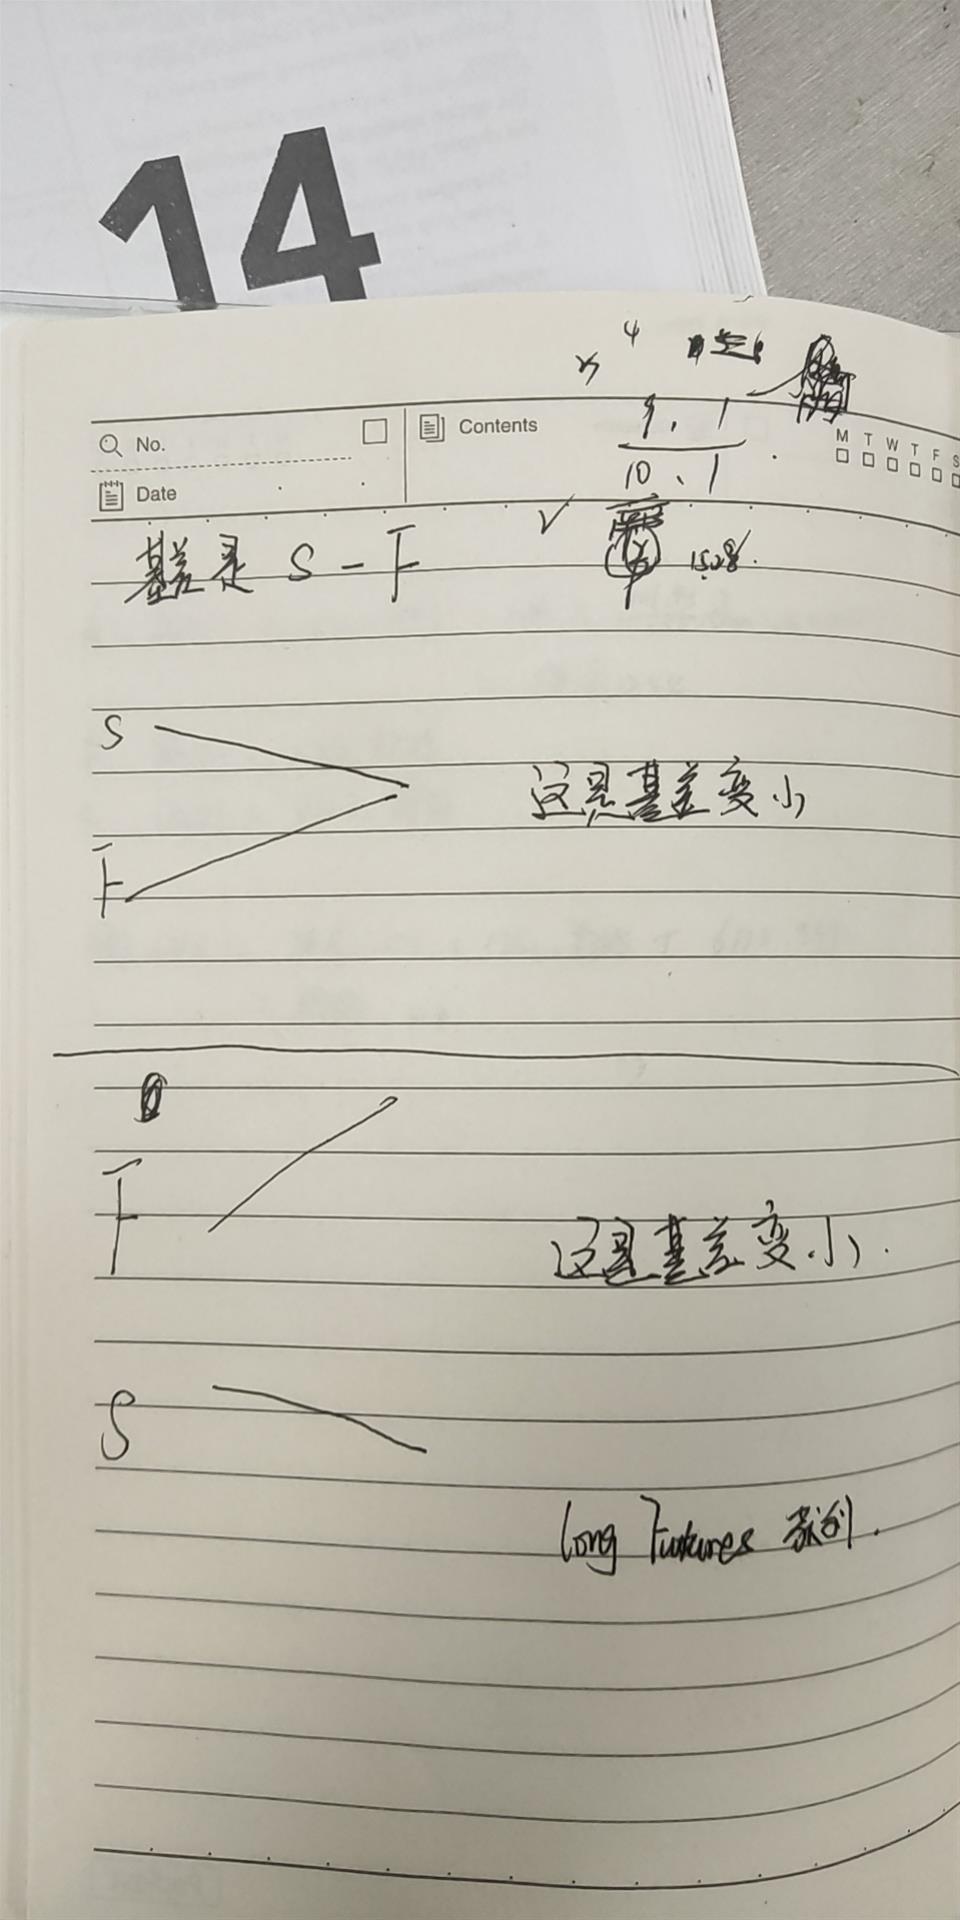 14
4
9.1
No.
Contents
10.1
M T W T F S
Date
基差是 S-F
S
这是基差变小
F
F
这是基差变小.
S
long Futures 获利.